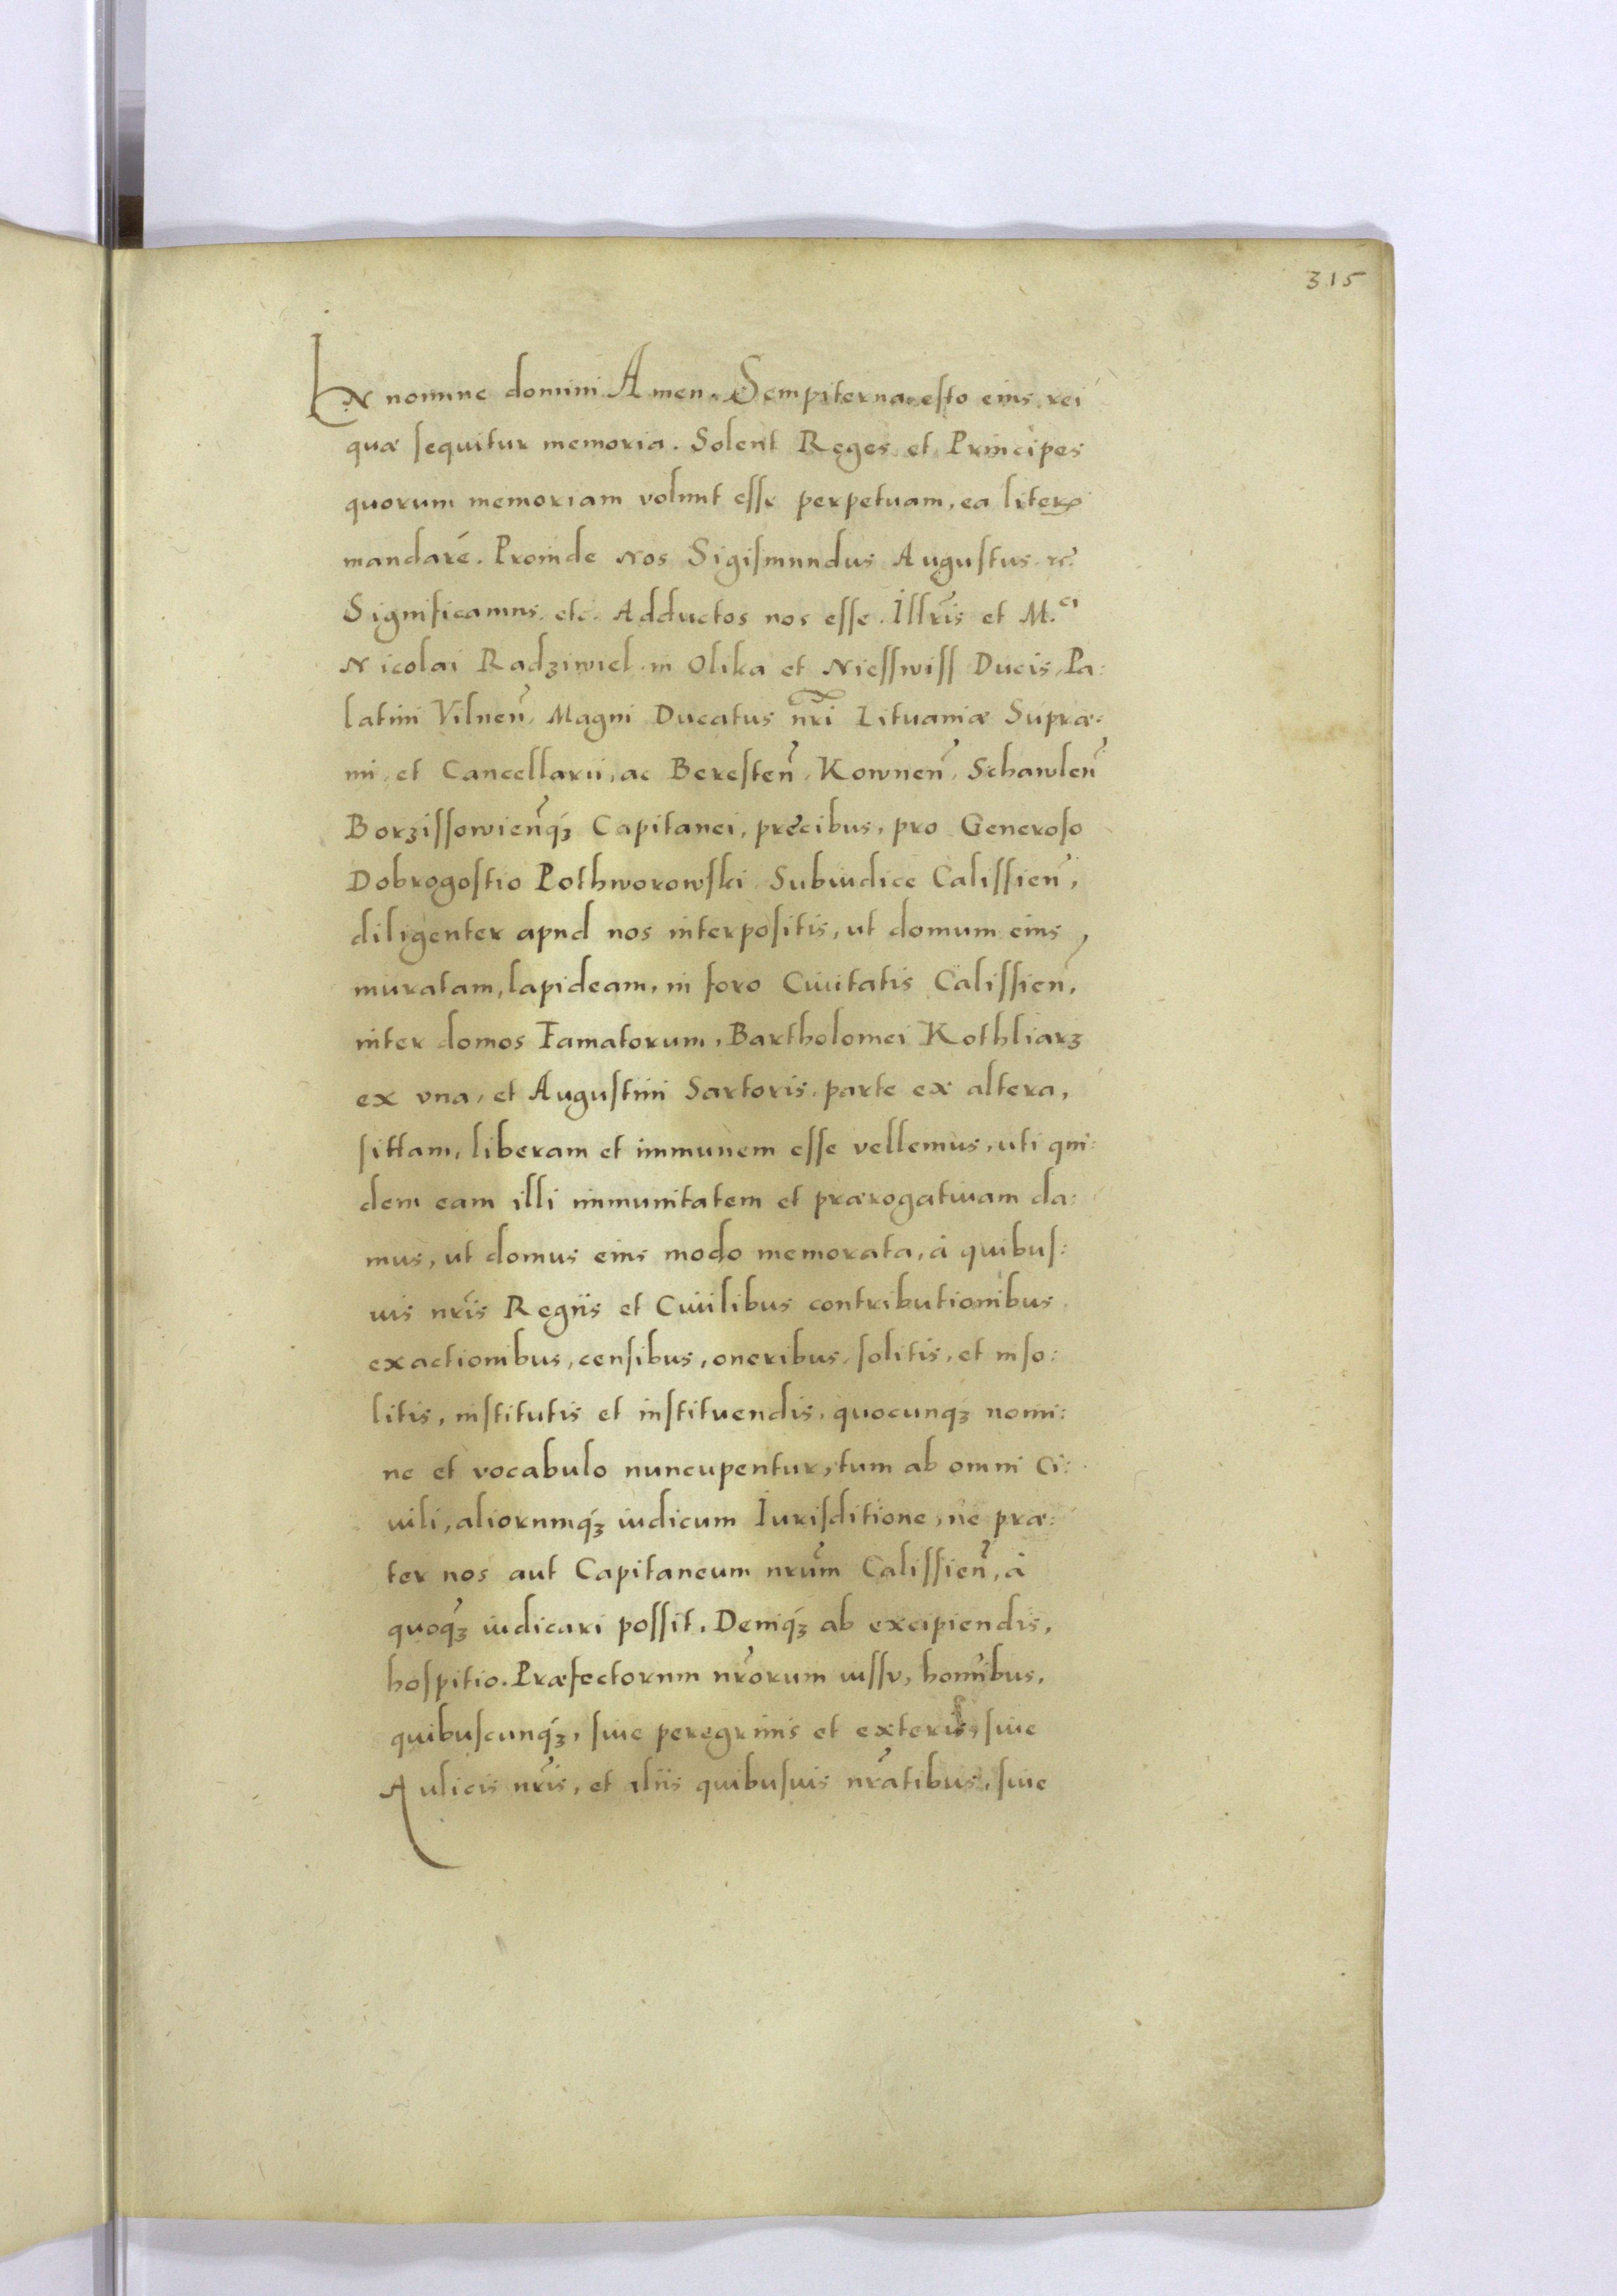 315
IN nomine domini Amen. Sempiterna esto eius rei
quæ sequitur memoria. Solent Reges et Principes
quorum memoriam volunt esse perpetuam, ea literꝭ
mandare. Proinde Nos Sigismundus Augustus etc.
Significamus. etc. Adductos nos esse Illris et M.ci
Nicolai Radziwiel in Olika et Niesswiss Ducis, Pa:
latini Vilnen̄, Magni Ducatus nr̄i Lituaniæ Supræ:
mi, et Cancellarii, ac Beresten̄, Kownen̄, Schawlen̄
Borzissowien̄qꝫ Capitanei, precibus, pro Generoso
Dobrogostio Pothworowski Subiudice Calissien̄,
diligenter apud nos interpositis, ut domum eius
muratam, lapideam, in foro Ciuitatis Calissien̄,
inter domos Famatorum, Bartholomei Kothliarz
ex vna, et Augustini Sartoris, parte ex altera,
sittam, liberam et immunem esse vellemus, uti qui:
dem eam illi immunitatem et prærogatiuam da:
mus, ut domus eius modo memorata, à quibus:
uis nr̄is Regiis et Ciuilibus contributionibus
exactionibus, censibus, oneribus, solitis, et inso:
litis, institutis et instituendis, quocunqꝫ nomi:
ne et vocabulo nuncupentur, tum ab omni Ci:
uili, aliorumqꝫ iudicum Iurisditione, ne præ:
ter nos aut Capitaneum nrūm Calissien̄, à
quoqꝫ iudicari possit. Deniqꝫ ab excipiendis,
hospitio. Præfectorum nr̄orum iussu, homībus,
quibuscunqꝫ, siue peregrinis et exteris, siue
Aulicis nr̄is, et aliis quibusuis nr̄atibus, siue